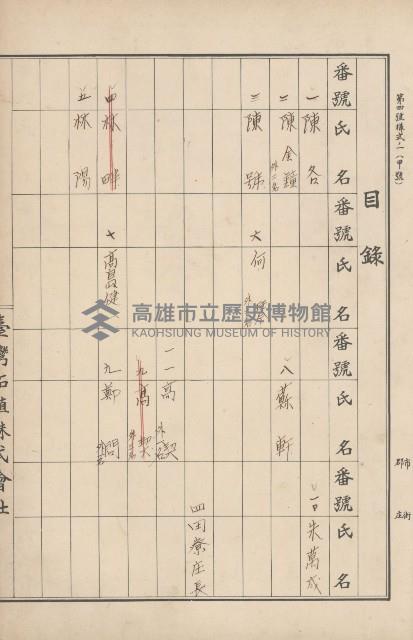 第四號樣式ノ一(甲號)
目錄
市 街
郡 庄
番號 氏名 番號 氏名 番號 氏名 番號 氏名
一 陳各
二 陳金鐘 外二名
三 陳號
四 林
五 林陽
六 何
七 高昌健
八 蘇軒
九 高 外
九 鄭問 外
一一 高 外一名
一〇 朱萬成
四 田寮庄長
臺灣石殖株式會社
高雄市立歷史博物館
KAOHSIUNG MUSEUM OF HISTORY